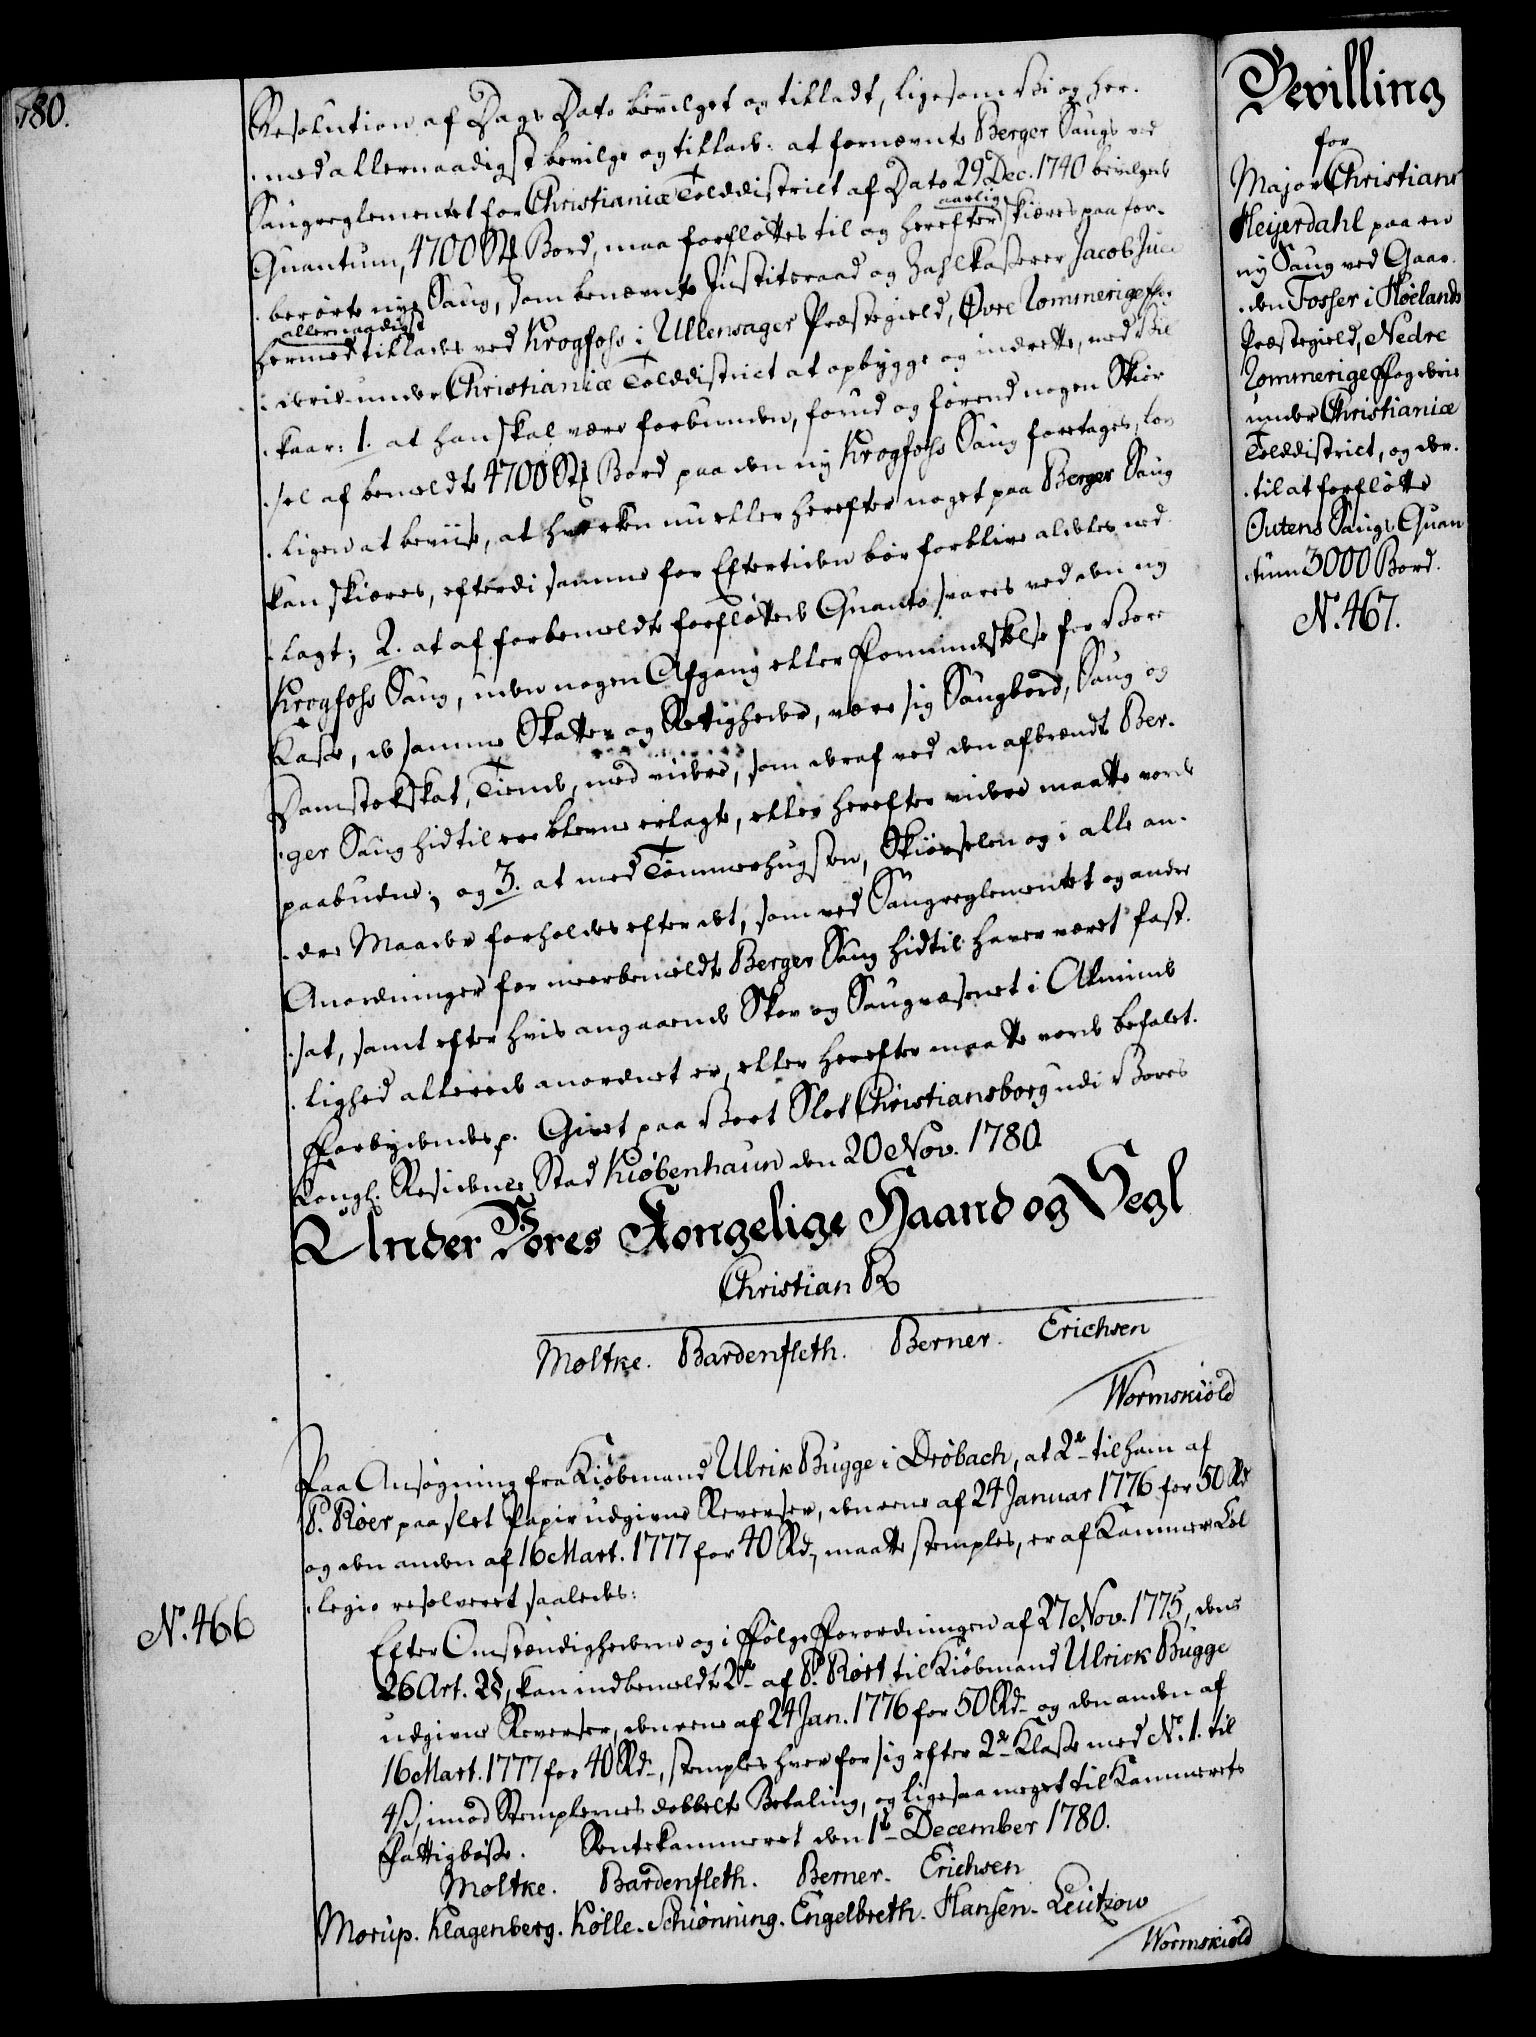 780.
Resolution af Dags Dato bevilget og tilladt, ligesom Vi og her-
med allernaadigst bevilge og tillade: at fornævnte Berger Saugs ved
Saugreglementet for Christianiæ Tolddistrict af Dato 29 Dec. 1740 bevilgede
Quantum, 4700 St. Bord, maa forflöttes til og herefter aarlig skiæres paa for-
berörte nye Saug, som benævnte Justitsraad og Zahlkasserer Jacob Juel
hermed allernaadigst tillades ved Krogfoss i Ullensager Præstegield, Øvre Rommerige Fog-
derie under Christianiæ Tolddistrict at opbygge og indrette, med Vil-
kaar: 1. at han skal være forbunden, forud og förend nogen Skiör-
sel af bemeldte 4700 St. Bord paa den ny Krogfoss Saug foretages, lov-
ligen at beviise, at hverken nu eller herefter noget paa Berger Saug
kan skiæres, efterdi samme for Eftertiden bör forblive aldeles ned-
lagt; 2. at af forbemeldte forflöttede Quanto svares ved den ny
Krogfoss Saug, uden nogen Afgang eller Formindskelse for Vor
Kasse, de samme Skatter og Rettigheder, være sig Saugbord, Saug og
Damstokskat, Tiende, med videre, som deraf ved den afbrændte Ber-
ger Saug hidtil ere blevne erlagte, eller herefter videre maatte vorde
paabudne; og 3. at med Tömmerhugsten, Skiörselen og i alle an-
dre Maader forholdes efter det, som ved Saugreglementet og andre
Anordninger for meerbemeldte Berger Saug hidtil haver været fast-
sat, samt efter hvis angaaende Skov og Saugvæsenet i Almind-
lighed allerede anordnet er, eller herefter maatte vorde befalet.
Forbydendes p. Givet paa Vort Slot Christiansborg udi Vores
Kongl. Residence Stad Kiøbenhaun den 20 Nov. 1780.
Under Vores Kongelige Haand og Segl
Christian R
Moltke. Bardenfleth. Berner. Erichsen
Wormskiöld
Paa Ansögning fra Kiöbmand Ulrik Bugge i Dröbach, at 2de til ham af
P. Röer paa slet Papir udgivne Reverser, den eene af 24 Januar 1776 for 50 Rd.
og den anden af 16 Mart. 1777 for 40 Rd., maatte stemples, er af Kammer Col-
legio resolveret saaledes:
No. 466
Efter Omstændighederne og i Fölge Forordningen af 27 Nov. 1775, dens
26 Art. 2 §, kan indbemeldte 2de af P. Röer til Kiöbmand Ulrick Bugge
udgivne Reverser, den eene af 24 Jan. 1776 for 50 Rd. og den anden af
16 Mart. 1777 for 40 Rd., stemples hver for sig efter 2de Klasse med No. 1. til
4 ß, imod Stemplernes dobbelte Betaling, og ligesaa meget til Kammerets
Fattigbösse. Rentekammeret den 1te December 1780.
Moltke. Bardenfleth. Berner. Erichsen
Morup. Klagenberg. Kölle. Schiönning. Engelbreth. Hansen. Leutzow
Wormskiöld
Bevilling
for
Major Christian
Heyerdahl paa en
ny Saug ved Gaar-
den Fosser i Höelands
Præstegield, Nedre
Rommerige Fogderie
under Christianiæ
Tolddistrict, og der-
til at forflötte
Outens Saugs Quan-
tum 3000 Bord.
No. 467.